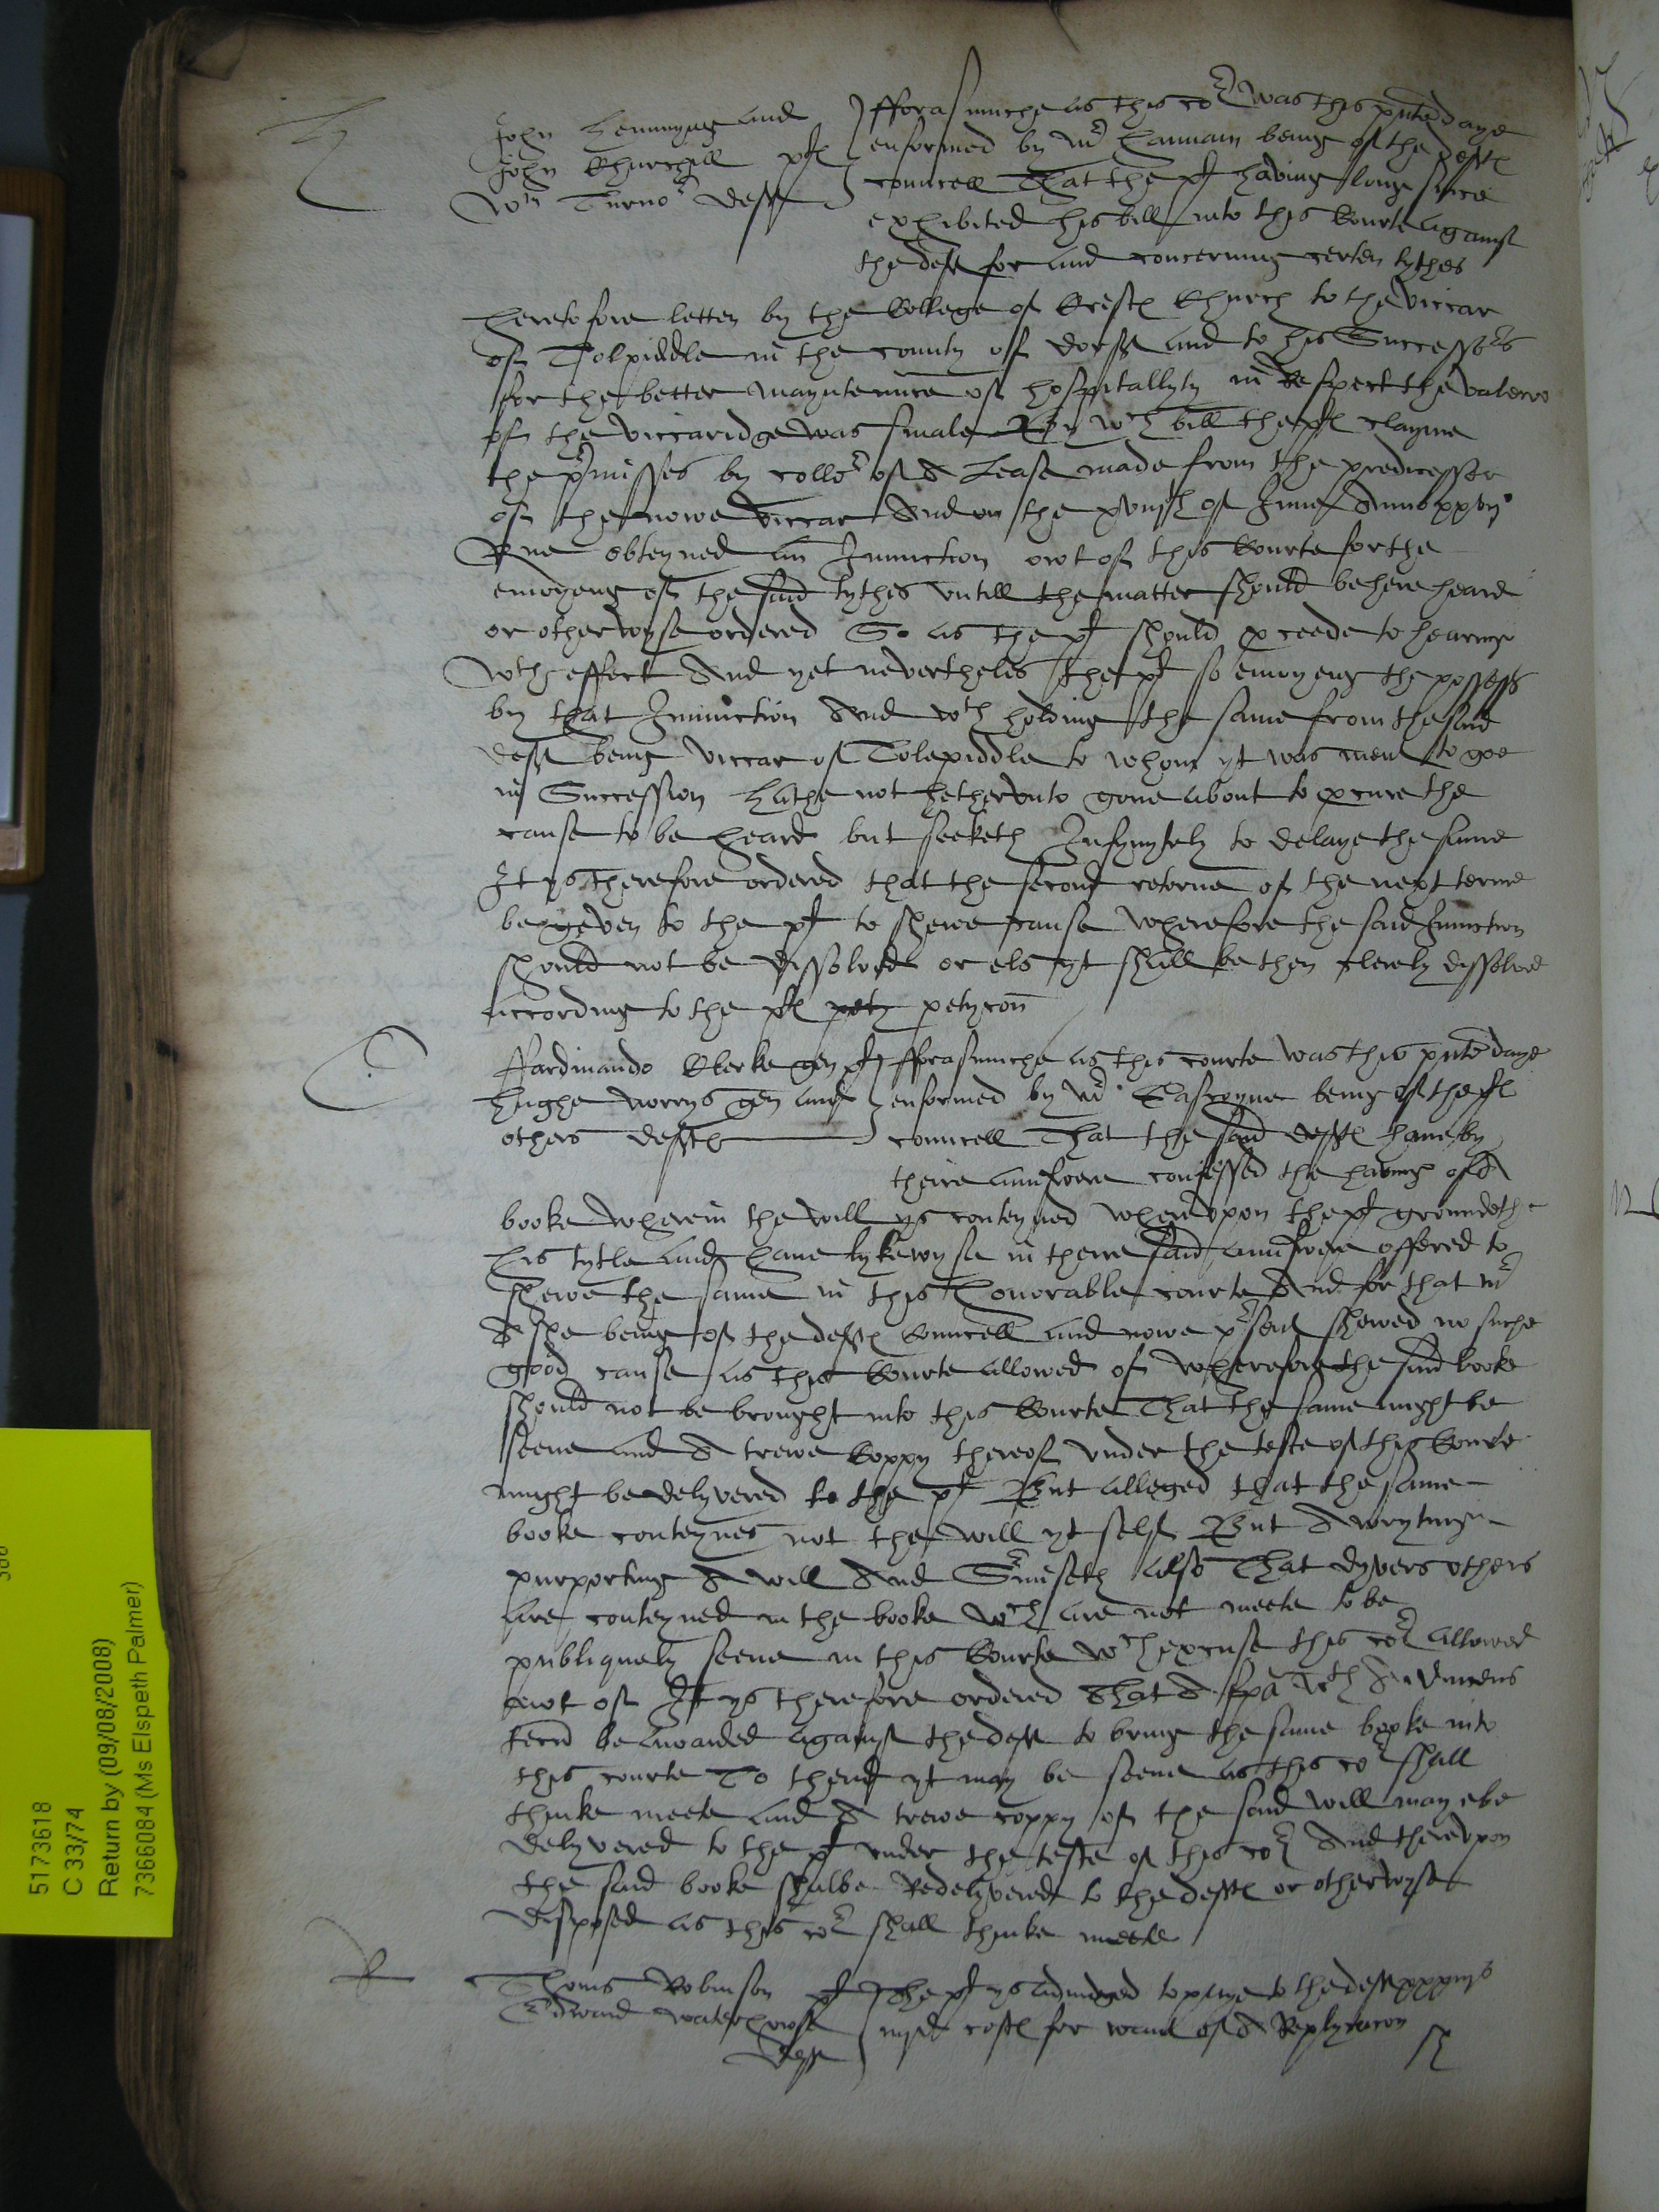 John Lemmyng and
John Churchill plt
Wm Turnor deft
fforasmuche as this cor was this pnte daye
enformed by mr Hannam being of the deftes
councell That the plt having long since
exhibited his bill into this Courte against
the deft for and concerning certen tythes
heretofore letten by the College of Cristes Church to the viccar
of Tolpiddle in the county of dorss and to his Successors
for the better mayntennce of hospitallyty in Respect the valewe
of the viccaridge was smale By wch bill the plt clayme
the pmisses by collor of A Lease made from the predicessor
of the nowe viccar And on the xviijth of June Anno xxvijo
Rne obteyned an Iniunction owt of this Courte for the
enioyeng of the said tythes untill the matter should be here heard
or otherwyse ordered So as the plt should pceede to hearing
wth effect And yet nevertheles the plt so enioyeng the possess
by that Iniunction And wth holding the same from the said
deft being viccar of Tolepiddle to whom yt was ment to goe
in Succession Hathe not hetherunto gone about to pcure the
cause to be heard but seeketh Infynytely to delaye the same
It ys therefore ordered that the second retorne of the next terme
be geven to the plt to shewe cause wherefore the said Iniunction
should not be dissolved or els yt shall be then clerely dissolved
according to the plt pety petycon
C
ffardinando Clerke gen plt
Hughe norrys gen and
others deftes
fforasmuche as this courte was this pnte daye
enformed by mr Gascoyne being of the plt
councell That the said deftes have by
theire aunswere confessed the having of A
booke wherein the will ys conteyned whereupon the plt groundethe
his tytle and have lykewyse in theire said aunswere offered to
shewe the same in this honorable courte And for that mr
being of the deftes Councell and nowe psent shewed no suche
good cause as this Courte allowed of wherefore the said booke
should not be brought into this Courte That the same might be
seene and A trewe Coppy thereof under the teste of this Courte
might be delyvered to the plt But alleged that the same
booke conteynes not the will yt self But A wryting
purporting A will And Surmiseth also That dyvers others
are conteyned in the booke wch are not meete to be
publiquely seene in this Courte wch excuse this cor allowed
not of It ys therefore ordered That A spa wth A
be awarded against the deft to bring the same booke into
this courte To thend yt may be seene as this cor shall
thinke meete and A trewe coppy of the said will may be
delyvered to the plt under the teste of this cor And thereupon
the said booke shalbe Redelyvered to the deftes or otherwyse
disposed as this cor shall thinke meete
R
Thoms Robinson plt
Edward waterhowse
deft
The plt ys adiudged to paye to the deft xxxiijs
iiijd costes for want of A Replycacon
5173618
C 33/74
Return by (09/08/2008)
7366084 (Ms Elspeth Palmer)